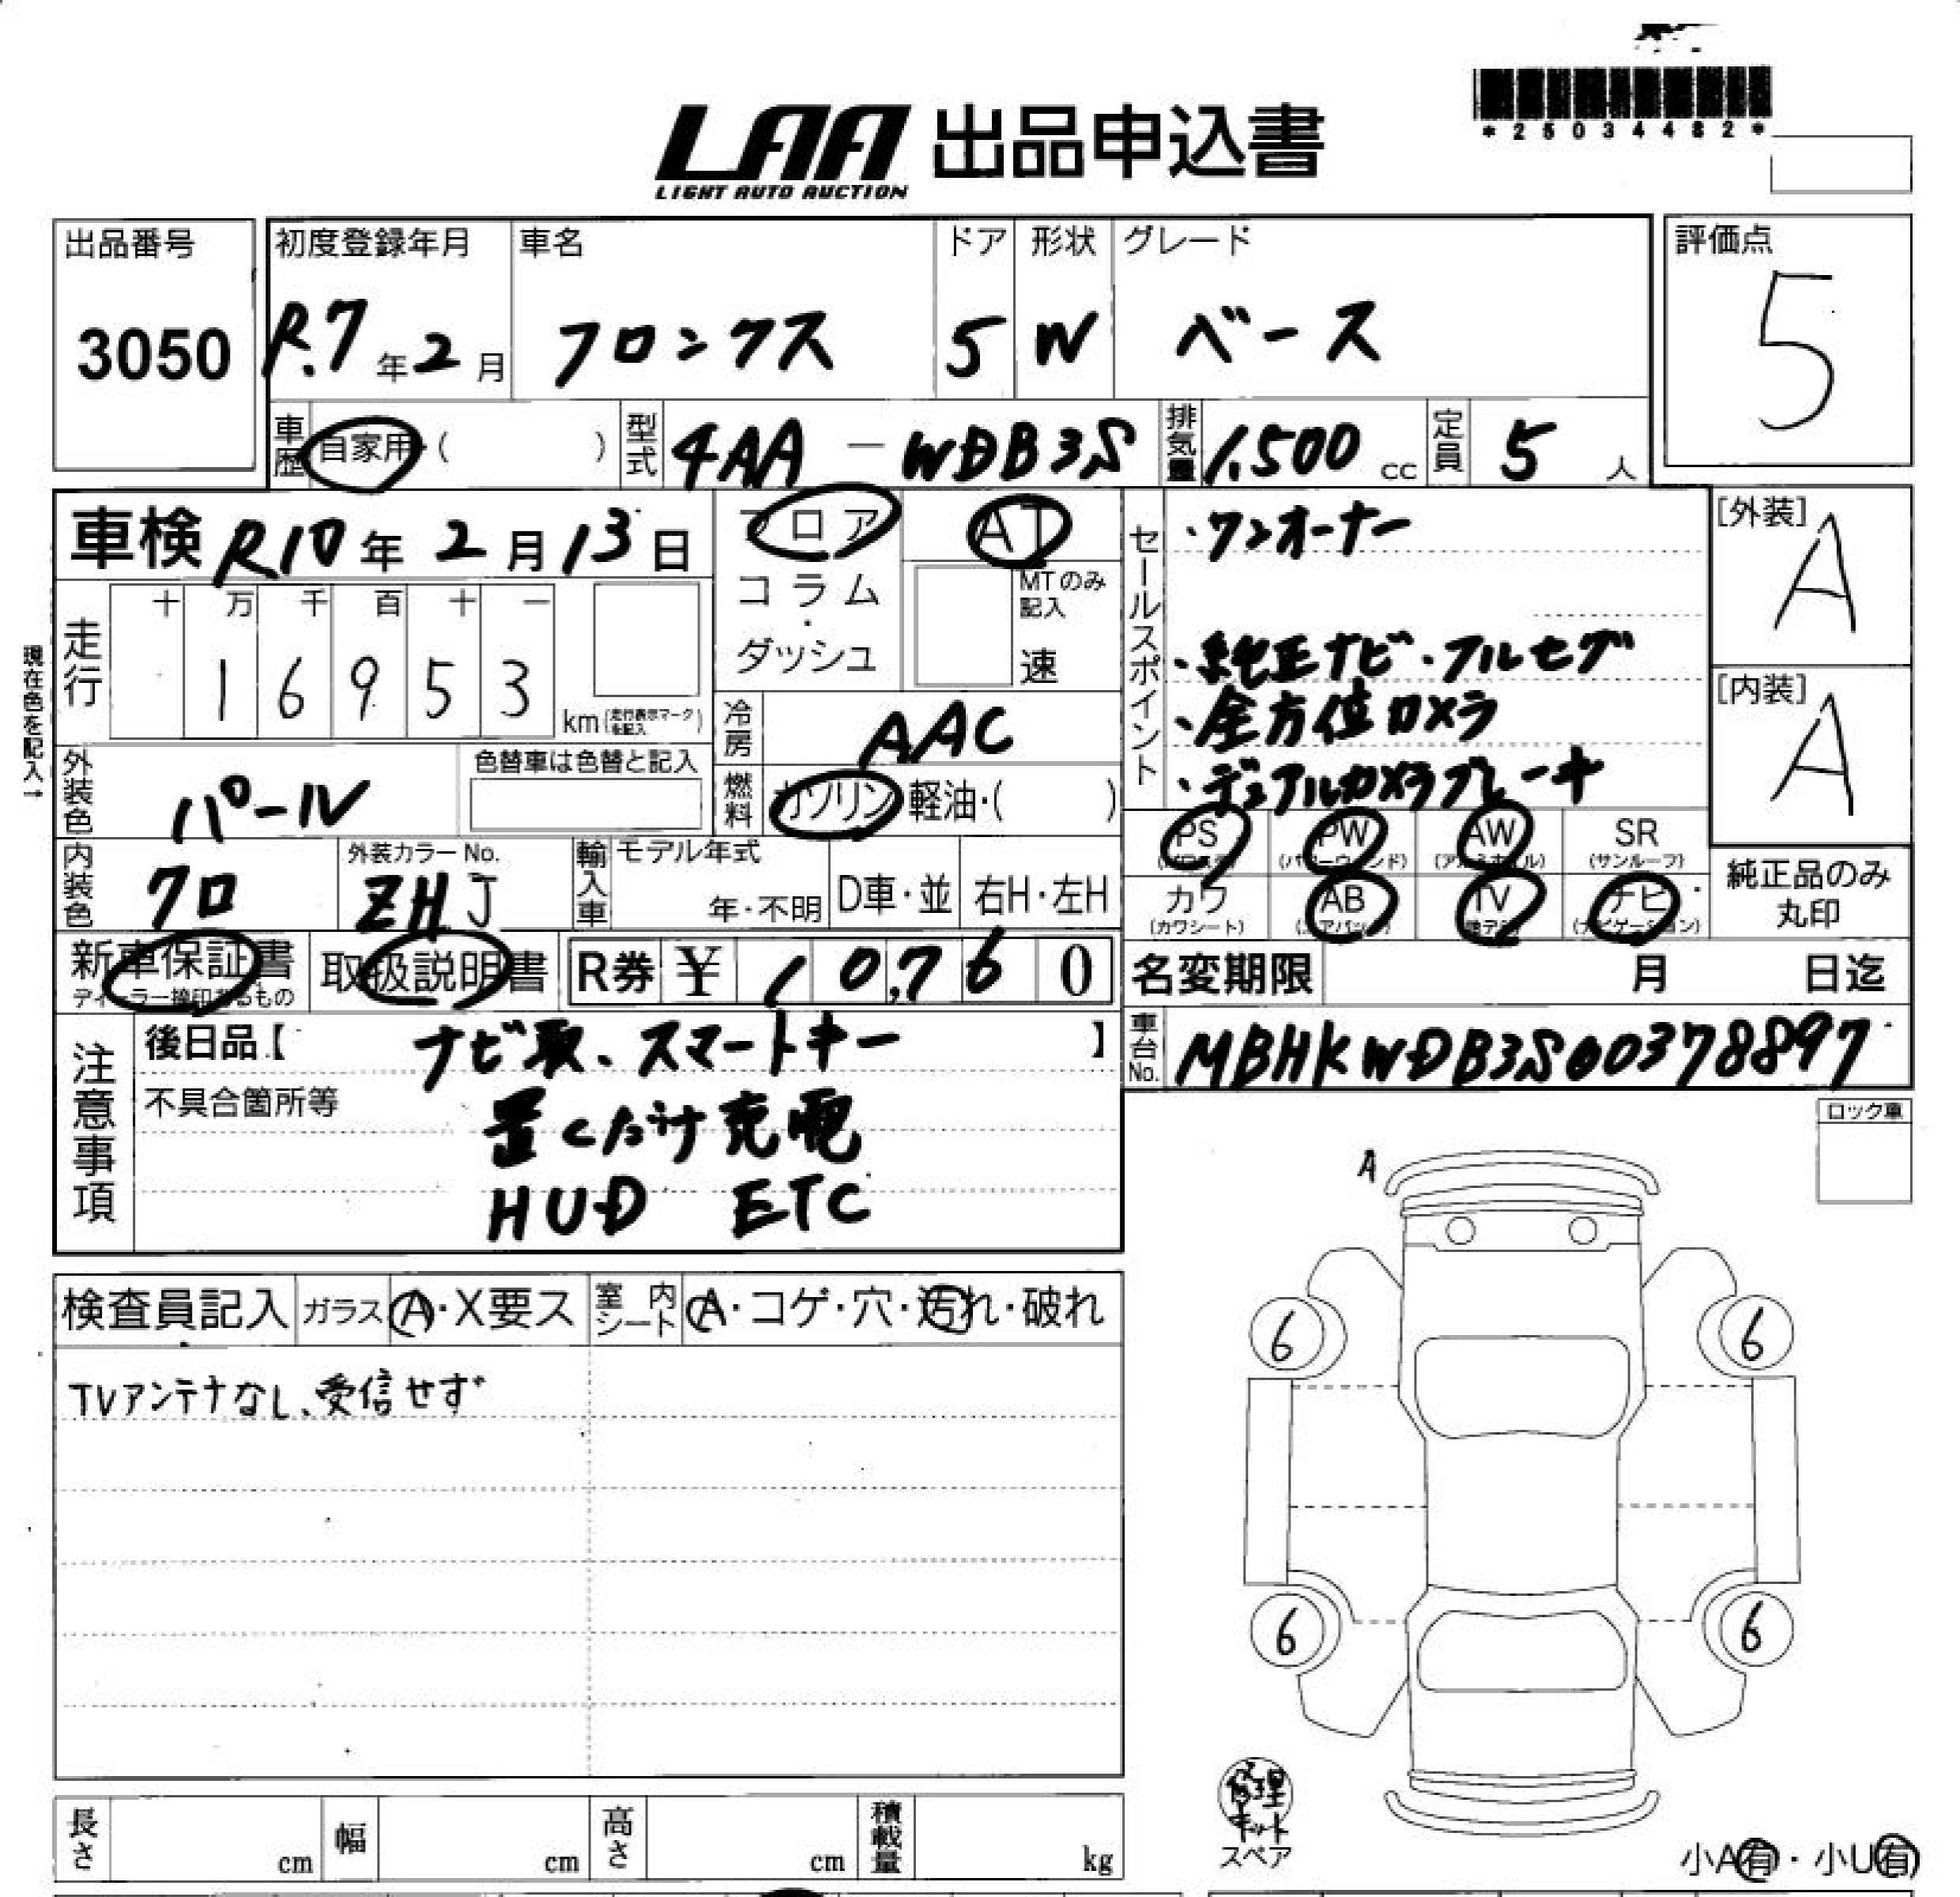 *25034482*
LAA 出品申込書
LIGHT AUTO AUCTION
出品番号 3050
初度登録年月 R.7年2月
車名 フロンクス
ドア 5
形状 W
グレード ベース
評価点 5
車歴 自家用・( )
型式 4AA-WDB3S
排気量 1,500 cc
定員 5 人
車検 R10年2月13日
フロア
コラム・ダッシュ
AT
MTのみ記入 速
セールスポイント
・ワンオーナー
・純正ナビ・フルセグ
・全方位カメラ
・デュアルカメラブレーキ
[外装] A
[内装] A
現在色を記入→
走行 十 万 千 百 十 一
1 6 9 5 3 km (走行表示マークを記入)
冷房 AAC
燃料 ガソリン 軽油・( )
外装色 パール
色替車は色替と記入
内装色 クロ
外装カラーNo. ZHJ
輸入車 モデル年式 年・不明 D車・並 右H・左H
PS PW (パワーウィンド) AW (アルミホイル) SR (サンルーフ)
カワ (カワシート) AB (エアバック) TV ナビ (ナビゲーション)
純正品のみ丸印
新車保証書
ディーラー捺印あるもの
取扱説明書
R券 ¥ 10,760
名変期限 月 日迄
車台No. MBHKWDB3S00378897
注意事項
後日品【 ナビ取、スマートキー 】
不具合箇所等
置くだけ充電
HUD ETC
ロック車
A
検査員記入 ガラス A・X要ス 室内シート A・コゲ・穴・汚れ・破れ
TVアンテナなし、受信せず
6 6
6 6
修理キット
スペア
小A有・小U有
長さ cm 幅 cm 高さ cm 積載量 kg